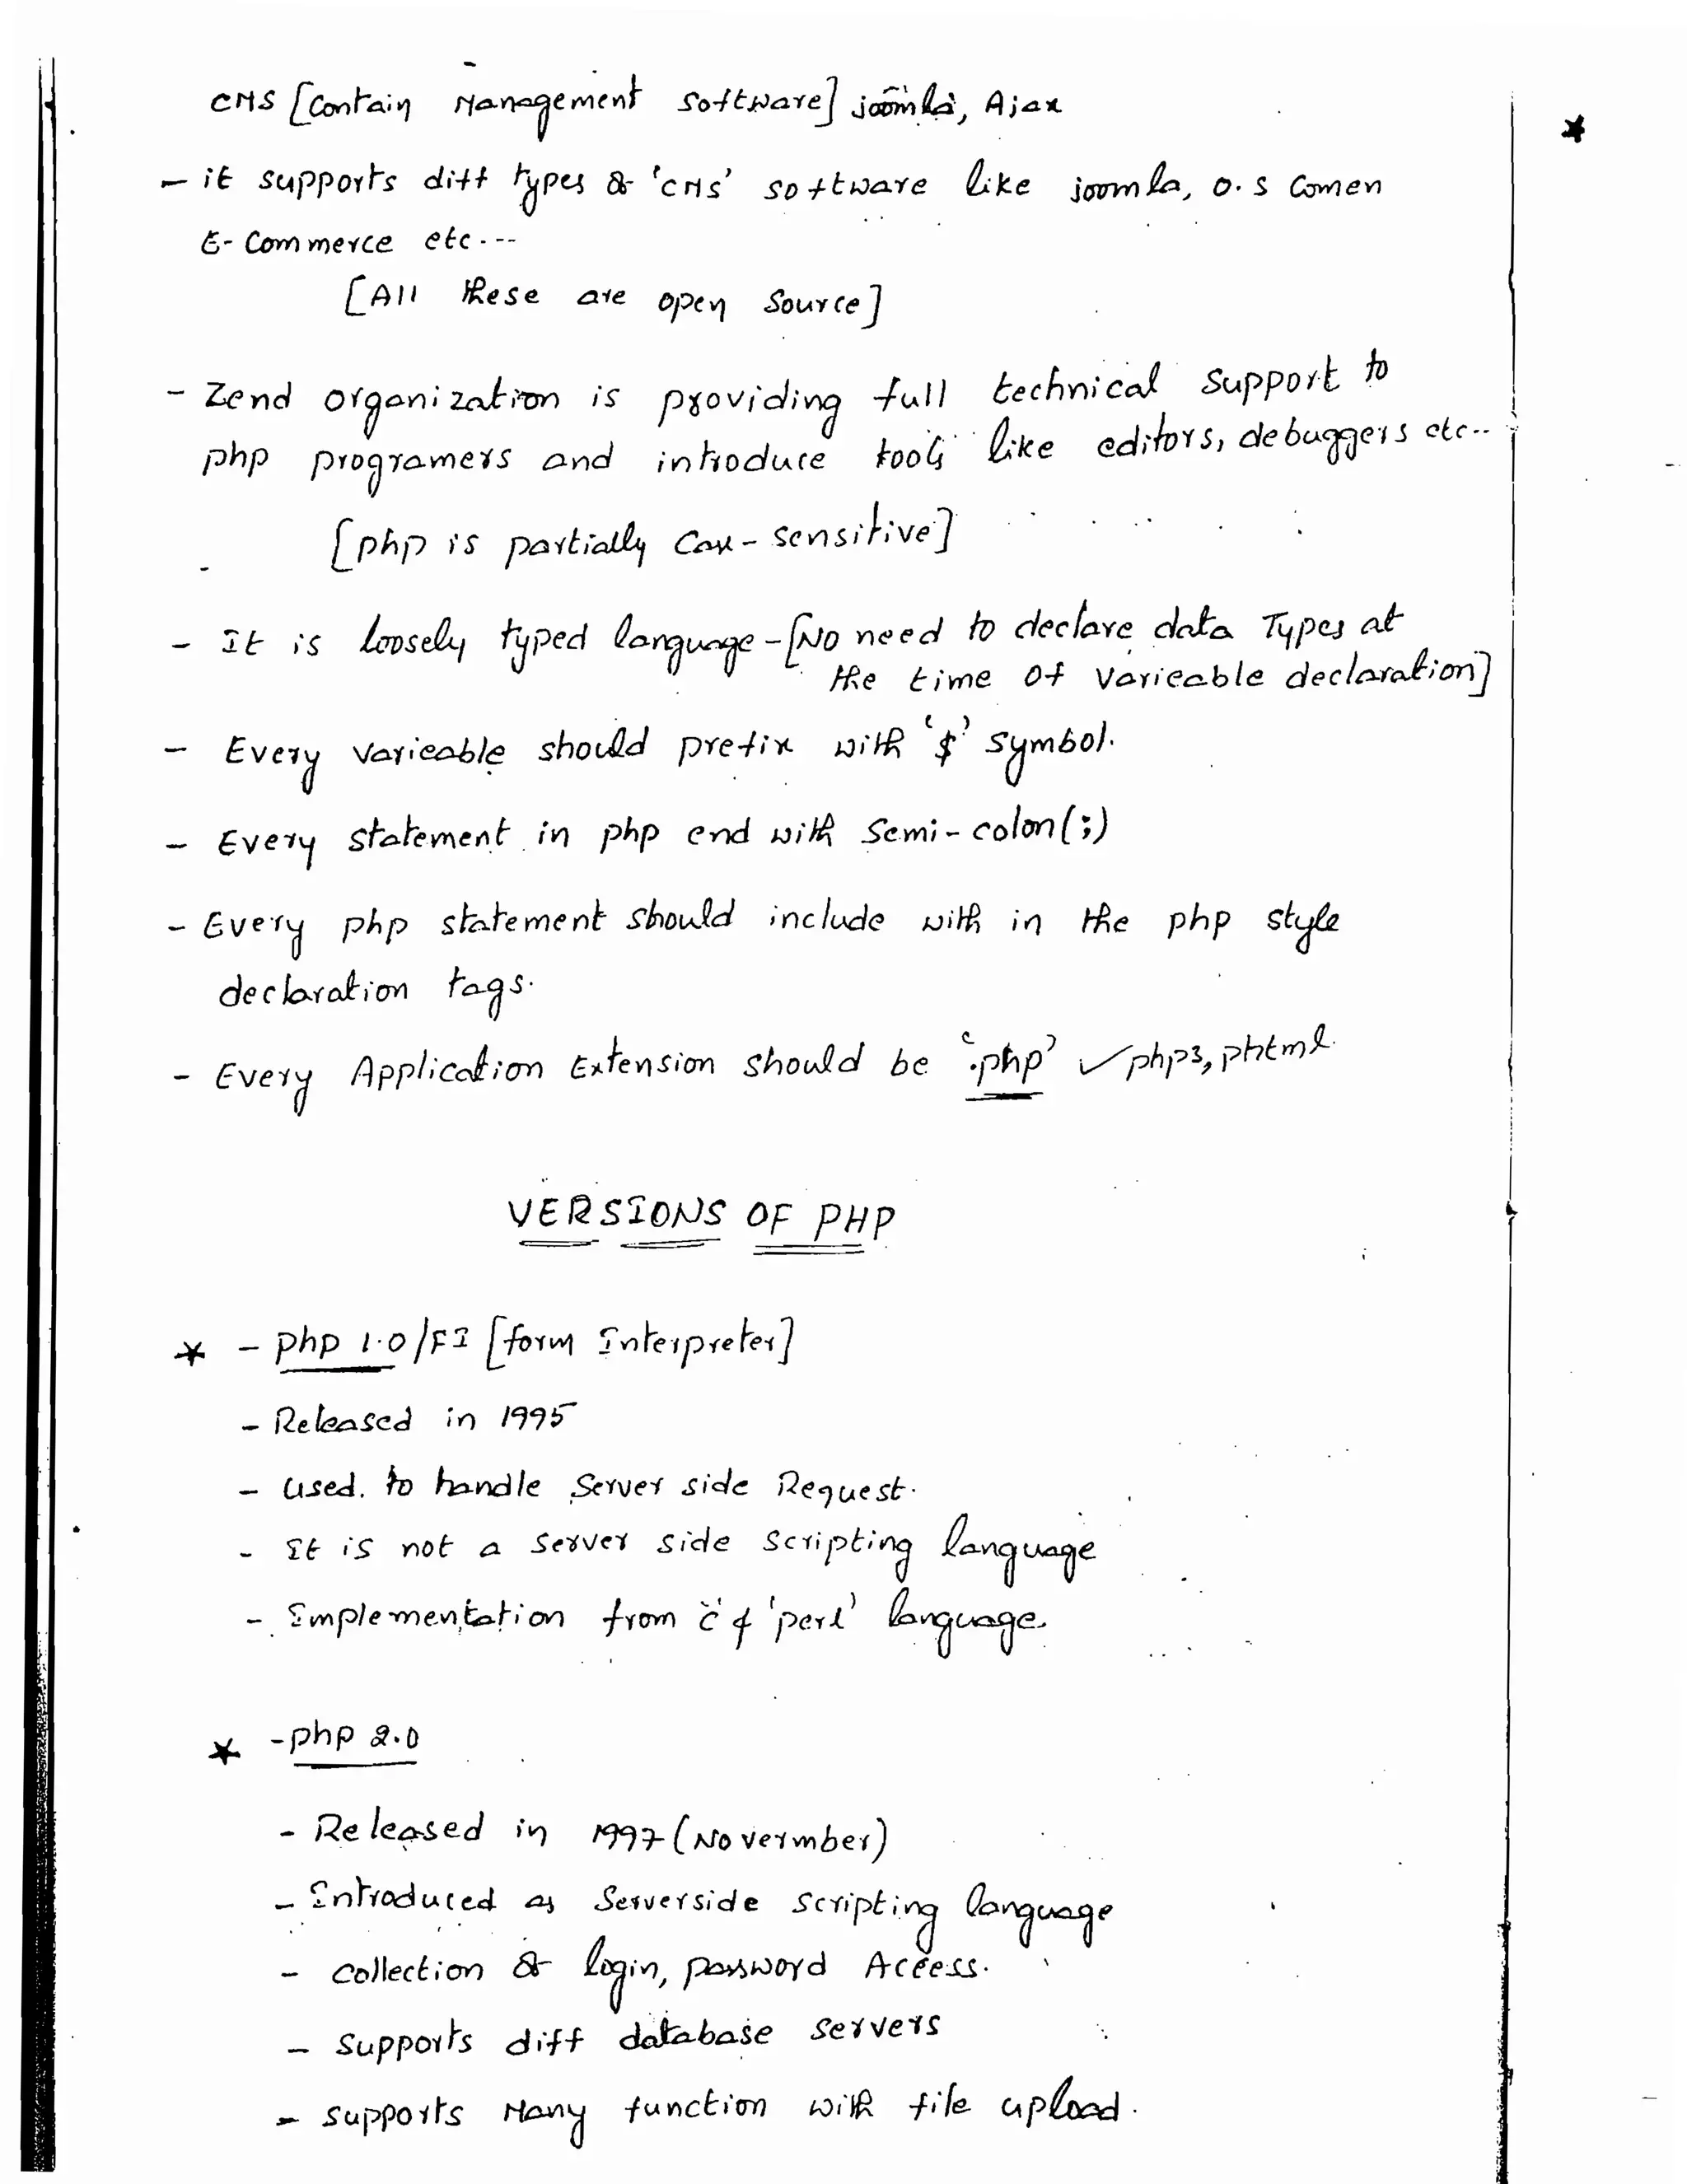 CMS [Contain Management Software] joomla, Ajax
- it supports diff types & 'CMS' software like joomla, O.S Comen
E-Commerce etc.--
[All these are open Source]
- Zend organization is providing full technical support to
php programers and introduce tools like editors, debuggers etc--
[php is partially Case-sensitive]
- It is loosely typed language-[No need to declare data Types at
the time of Varieable declaration]
- Every Varieable should prefix with '$' symbol.
- Every statement in php end with Semi-colon(;)
- Every php statement should include with in the php style
declaration tags.
- Every Application Extension should be '.php' ✓php3, phtml.
VERSIONS OF PHP
* - php 1.0/FI [form Interpreter]
- Released in 1995
- Used. to handle Server side Request.
- It is not a server side scripting language
- Implementation from 'C' & 'perl' language.
* - php 2.0
- Released in 1997 (Novermber)
- Introduced as Serverside scripting language
- collection & login, password Access.
- Supports diff database servers
- supports Many function with file upload.